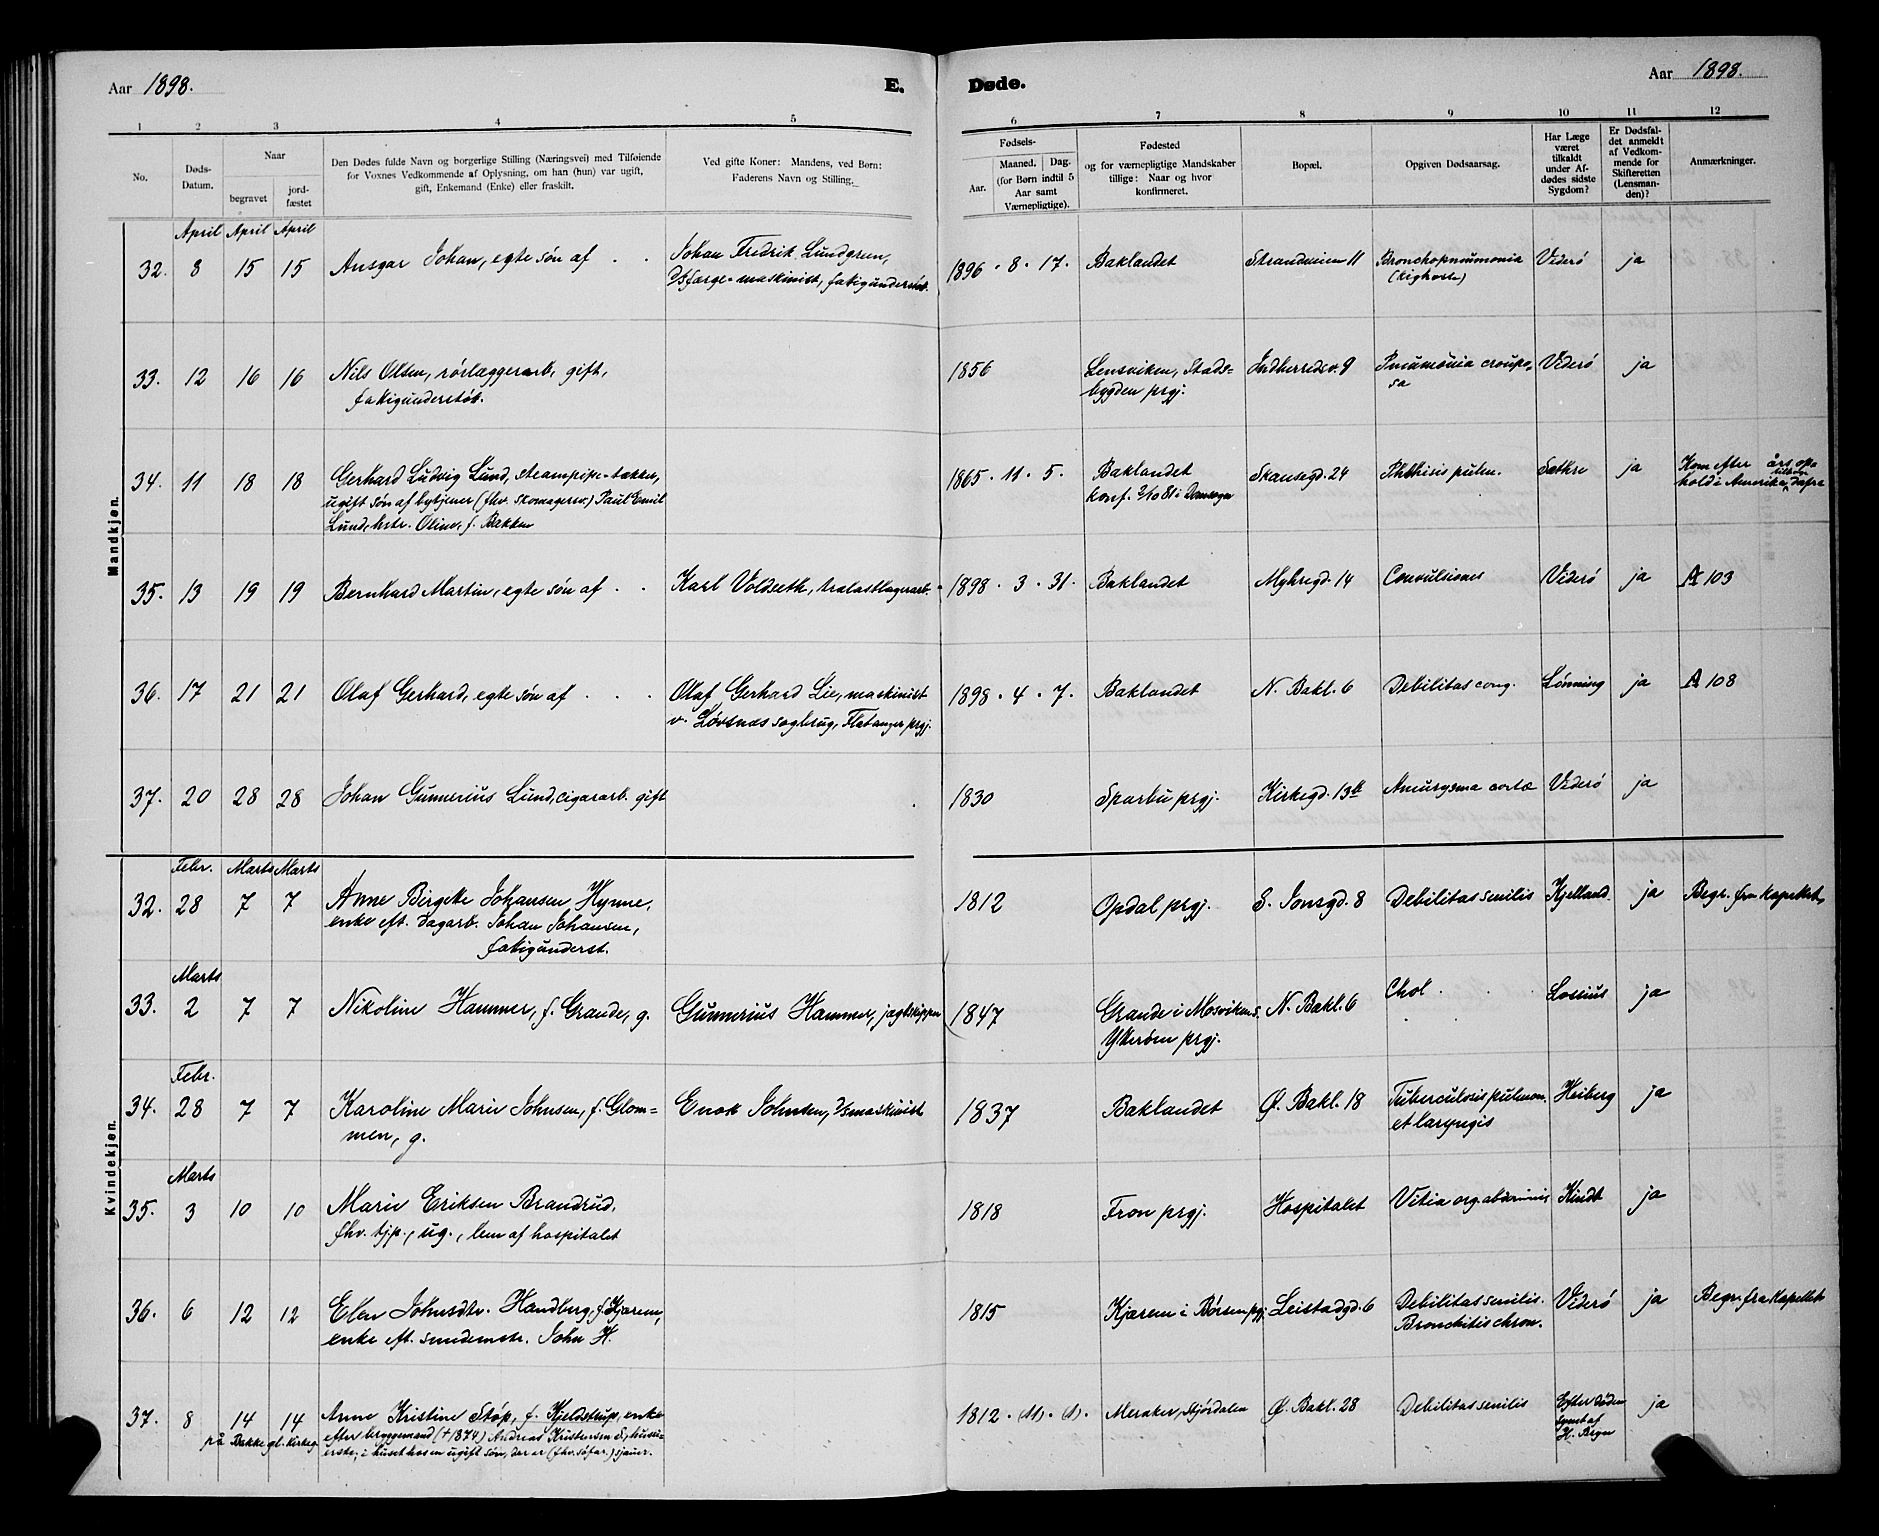 Aar 1898. E. Døde. Aar 1898.
1 2 3 4 5 6 7 8 9 10 11 12
No.
Døds-
Datum.
Naar
begravet
jord-
fæstet
Den Dødes fulde Navn og borgerlige Stilling (Næringsvei) med Tilføiende
for Voxnes Vedkommende af Oplysning, om han (hun) var ugift,
gift, Enkemand (Enke) eller fraskilt.
Ved gifte Koner: Mandens, ved Børn:
Faderens Navn og Stilling.
Fødsels-
Aar.
Maaned. Dag.
(for Børn indtil 5
Aar samt
Værnepligtige).
Fødested
og for værnepligtige Mandskaber
tillige: Naar og hvor
konfirmeret.
Bopæl.
Opgiven Dødsaarsag.
Har Læge
været
tilkaldt
under Af-
dødes sidste
Sygdom?
Er Dødsfal-
det anmeldt
af Vedkom-
mende for
Skifteretten
(Lensman-
den)?
Anmærkninger.
Mandkjøn.
April April April
32. 8 15 15 Ansgar Johan, egte søn af . . Johan Fredrik Lundgren, 1896 . 8 . 17. Baklandet Strandveien 11 Bronchopneumonia Viderö ja
D/S farge-maskinist, fatigunderstøt. (kighoste)
33. 12 16 16 Nils Olsen, rørlæggerarb, gift, 1856 Lensviken, Stads- Indherredsv. 9 Pneumonia croupo- Viderö ja
fatigunderstøt. bygden prgj. sa
34. 11 18 18 Gerhard Ludvig Lund, steampipe-tækker, 1865 . 11 . 5. Baklandet Skansegd. 24 Phthisis pulm. Sæthre ja Kom efter års op-
ugift søn af bytjener (fhv. skomagersv.) Paul Emil konf. 2/10 81 i Domsogn hold i Amerika
Lund, hstr. Oline, f. Bakken
35. 13 19 19 Bernhard Martin, egte søn af . . Karl Voldseth, trælastlagerarb. 1898 . 3 . 31. Baklandet Myhregd. 14 Convulsiones Viderö ja A 103
36. 17 21 21 Olaf Gerhard, egte søn af . . . Olaf Gerhard Lie, maskinist 1898 . 4 . 7. Baklandet N. Bakl. 6 Debilitas cong. Lönning ja A 108
v. Løvsnæs sagbrug, Flatanger prgj.
37. 20 28 28 Johan Gunnerius Lund, cigararb. gift 1830 Sparbu prgj. Kirkegd. 13b Aneurysma aortæ Viderö ja
Kvindekjøn.
Febr. Marts Marts
32. 28 7 7 Anne Birgete Johansen Hynne, 1812 Opdal prgj. E. Jonsgd. 8 Debilitas senilis Kjelland ja Begr. fra kapellet
enke eft. dagarb. Johan Johansen,
fatigunderst.
Marts
33. 2 7 7 Nikoline Hammer, f. Grande, g. Gunnerius Hammer, jagtskipper 1847 Grande i Mosvikens. N. Bakl. 6 Chol . . . Lossius ja
Ytterøen prgj.
Febr.
34. 28 7 7 Karoline Marie Johnsen, f. Glom- Enok Johnsen, D/S maskinist 1837 Baklandet Ø. Bakl. 18 Tuberculosis pulmon. Heiberg ja
men, g. et laryngis
Marts
35. 3 10 10 Marie Eriksen Brandrud, 1818 Fron prgj. Hospitalet Vitia org. abdominis Kindt ja
fhv. tjp., ug., lem af hospitalet
36. 6 12 12 Elen Johnsdtr. Handberg, f. Kjærem, 1815 Kjærem i Børsen prgj. Leistadgd. 6 Debilitas senilis. Viderö ja Begr. fra kapellet
enke eft. smedemstr. John H. Bronchitis chron.
37. 8 14 14 Anne Kristine Støp, f. Kjeldstrup, enke 1812 . (11) . (1). Meraker, Stjördalen Ø. Bakl. 28 Debilitas senilis Efter døden ja
på Bakke gl. kirkeg. efter bryggemand († 1874) Andreas Kristensen S., synet af
i huset hos en ugift søn, der er (fhv. søfar.) sjauer. H. Bryn